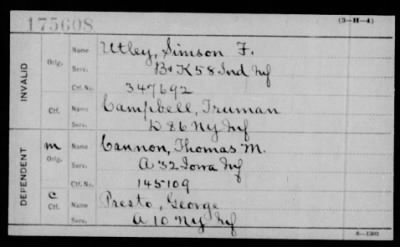 175608
(3-H-4)
INVALID
Orig. Name Utley, Simson F.
Serv. B. K 58 Ind Inf
Ctf. No. 347692
Ctf. Name Campbell, Truman
Serv. D 86 Ny Inf
DEPENDENT
m Orig. Name Cannon, Thomas M.
Serv. A 32 Iowa Inf
Ctf. No. 145109
C Ctf. Name Presto, George
Serv. A 10 Ny Inf